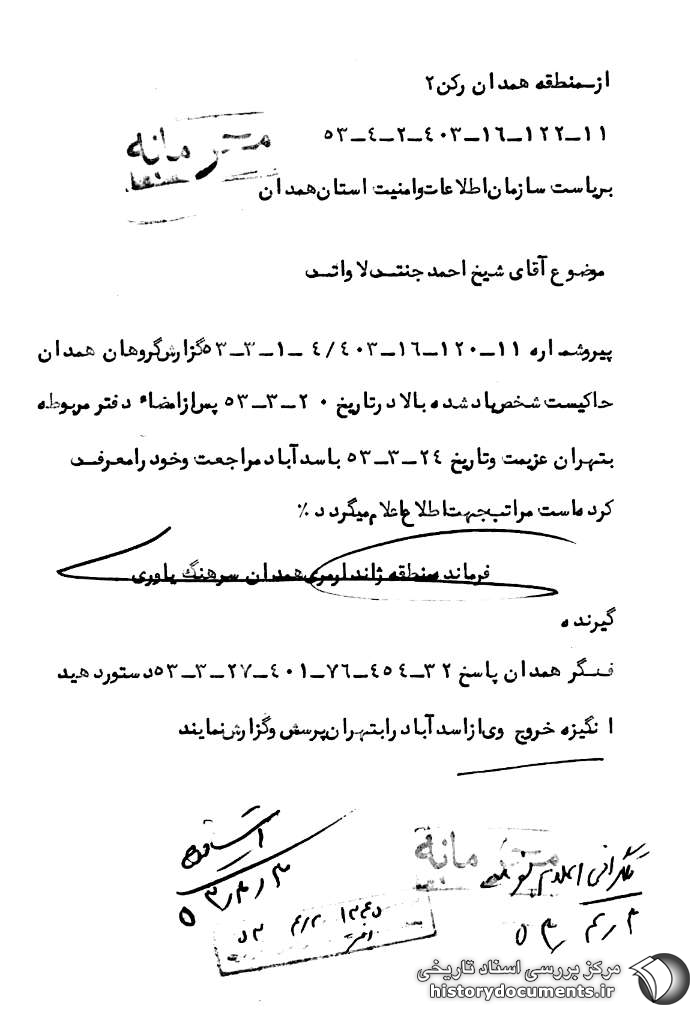 از_منطقه همدان رکن۲
۱۱_۱۲۲_۱۶_۴۰۳_۲_۴_۵۳
محرمانه
بریاست سازمان اطلاعات وامنیت استان همدان
موضوع آقای شیخ احمد جنتــدلا واتــد
پیروشماره ۱۱_۱۲۰_۱۶_۴۰۳/۴ _۱_۳_۵۳گزارش گروهان همدان
حاکیست شخص یاد شده بالا درتاریخ ۲۰_۳_۵۳ پس ازامضاء دفتر مربوطه
بتهران عزیمت وتاریخ ۲۴_۳_۵۳ باسدآباد مراجعت وخود رامعرفــ
کرده است مراتب جهت اطلاع اعلام میگردد٪
فرمانده منطقه ژاندارمری همدان سرهنگ یاوری
گیرنده
فــگر همدان پاسخ ۳۲_۴۵۴_۷۶_۴۰۱_۲۷_۳_۵۳دستوردهید
انگیزه خروج وی ازاسدآباد رابتهران پرسش وگزارش نمایند
محرمانه
۵۳/۴/۳
۵۳/۴/۳
۱۲۴۵
۵۳ ۴/۲
مرکز بررسی اسناد تاریخی
historydocuments.ir